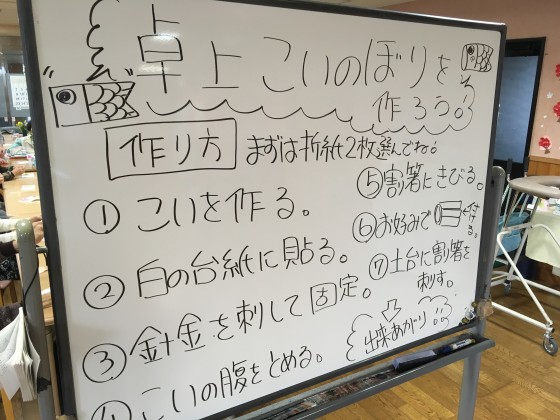 卓上こいのぼりを
作ろう!
作り方 まずは折紙2枚選んでね。
① こいを作る。
② 白の台紙に貼る。
③ 針金を刺して固定。
④ こいの腹をとめる。
⑤割箸にきびる。
⑥お好みで ←付ける。
⑦土台に割箸を
刺す。
出来あがり